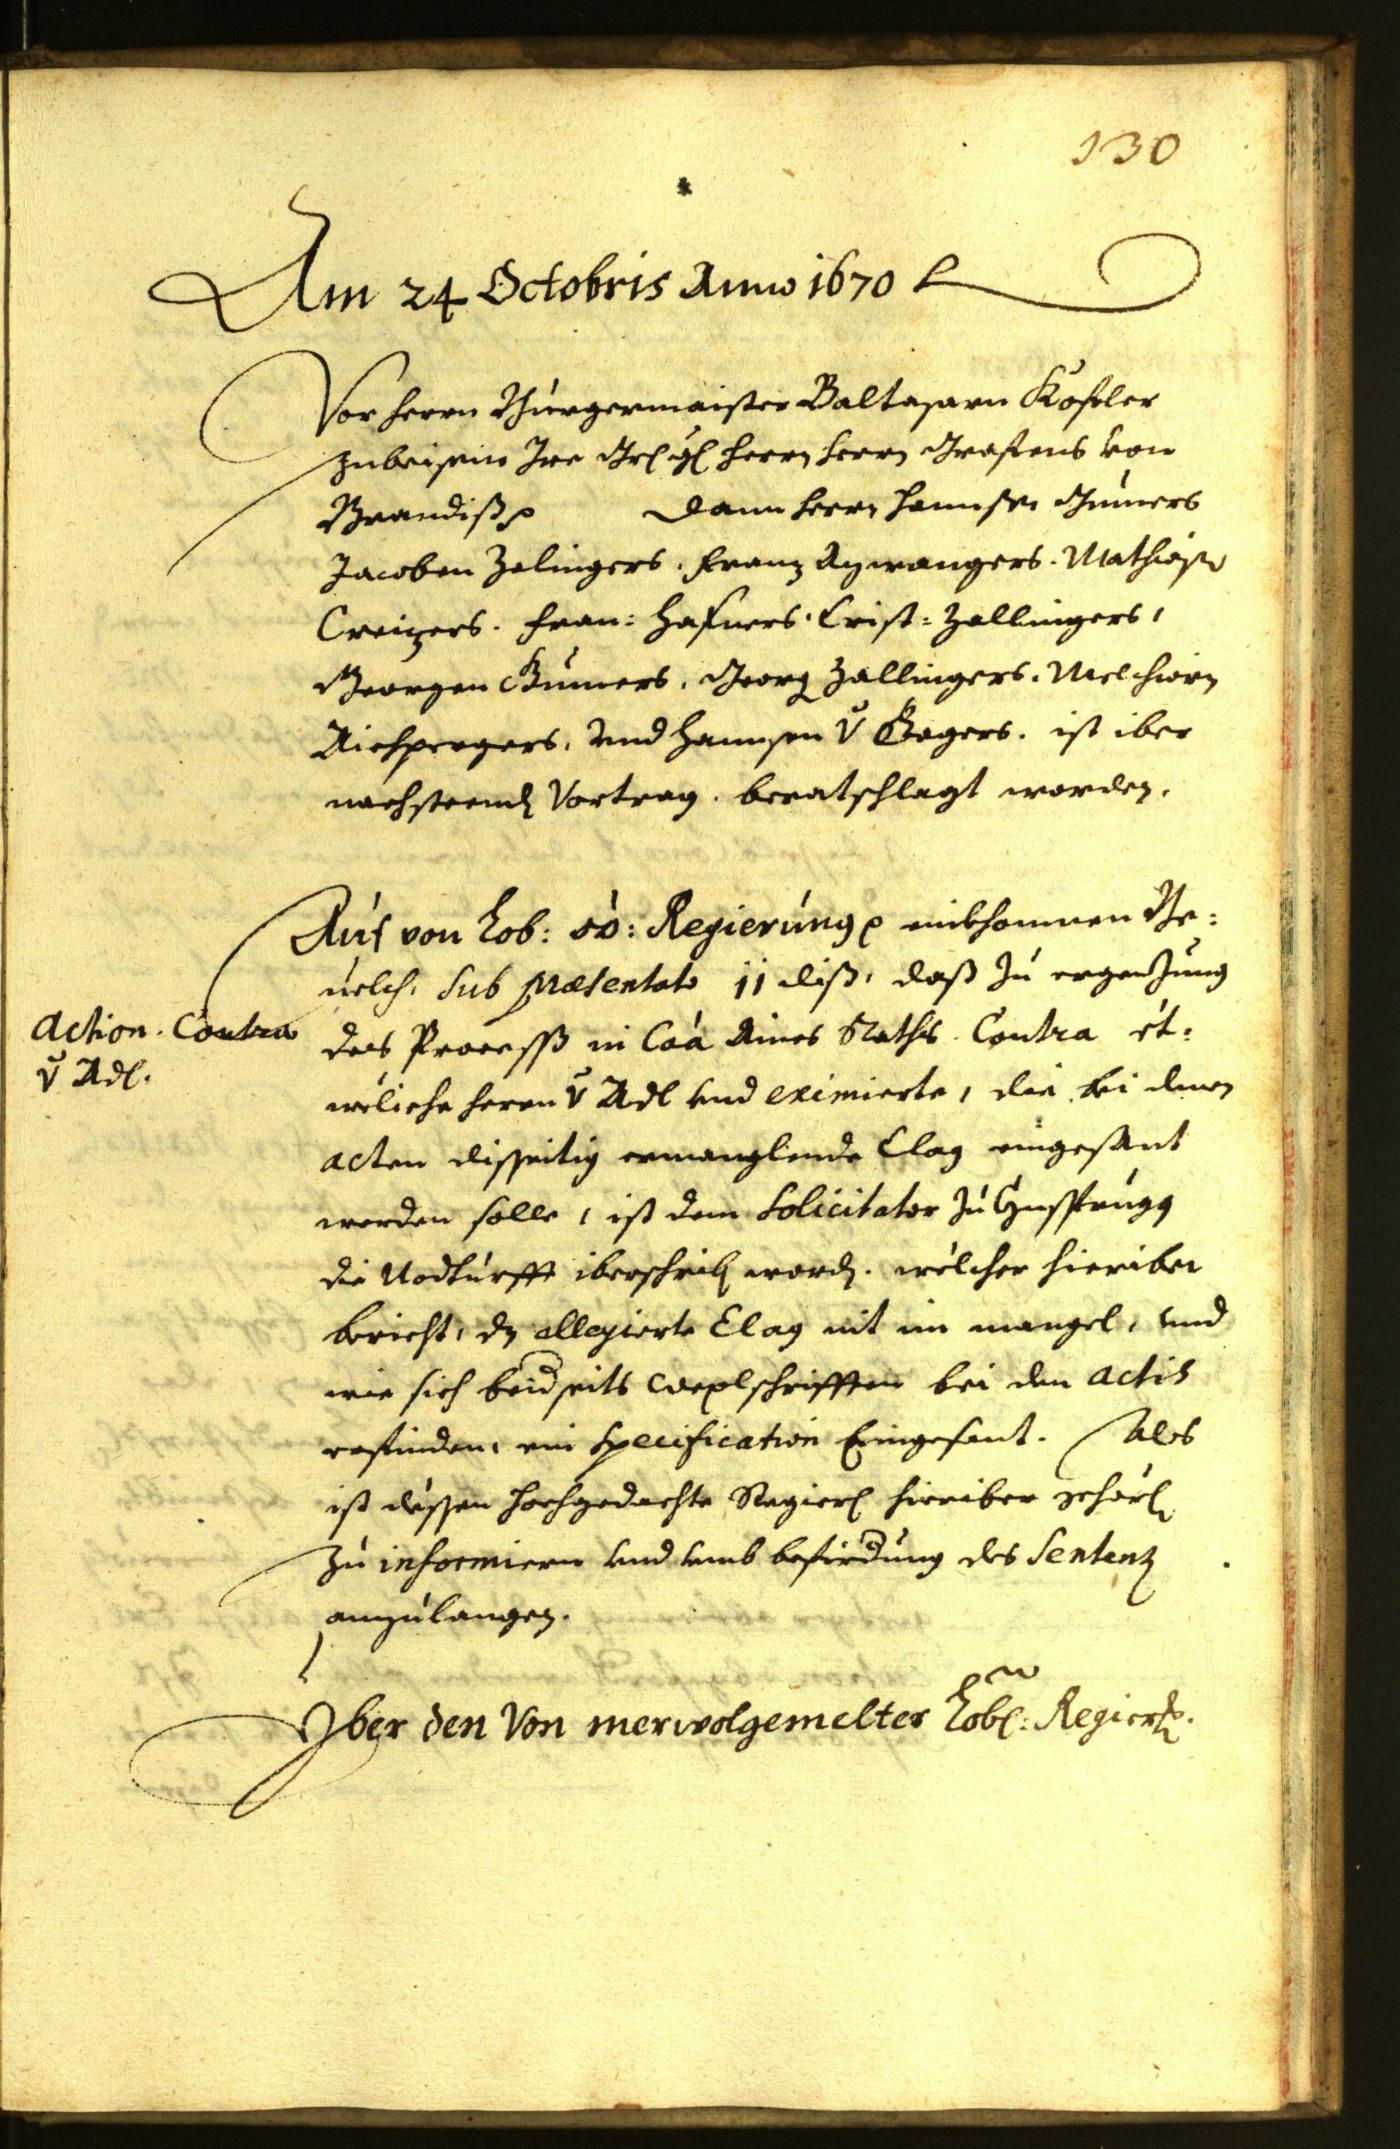 130
Am 24 Octobris Anno 1670
Vor herrn Burgermaister Baltasarn Kofler
zubeisein Ire Grl gl herrn herrn Grafens von
Brandiß Dann herrn Hannsen Gumers
Jacoben Zelingers. Franz Aywangers. Mathiaßn
Creizers. Fran: Hafners. Crist: Zallingers,
Georgen Gumers. Georg Zallingers. Melchiorn
Aichpergers, vnd Hannsen V Gagers. ist iber
nachsteend Vortrag. beratschlagt worden.
Auf von Lob: öö: Regierung einkhomnen Be:
uelch. sub Præsentato 11 diß, daß zu ergenzung
Action. Contra
V Adl.
des Proceß in Caá Aines Raths Contra et:
weliche herrn V Adl vnd eximierte, die bei denen
acten disseitig ermanglende Clag eingesant
werden solle, ist dem Solicitator zu Ynsprugg
die Nodturfft iberschrib word. welcher hieriber
bericht, dz allegierte Clag nit im mangel, vnd
wie sich beidseits wexlschrifften bei den actis
befinden, ein specification Eingesant. Als
ist dessen hochgedachte Regier hieriber gehorl
zu informiern vnd vmb befirdung des Sentenz
anzulangen.
Yber den Von merwolgemelter Lobl: Regier.